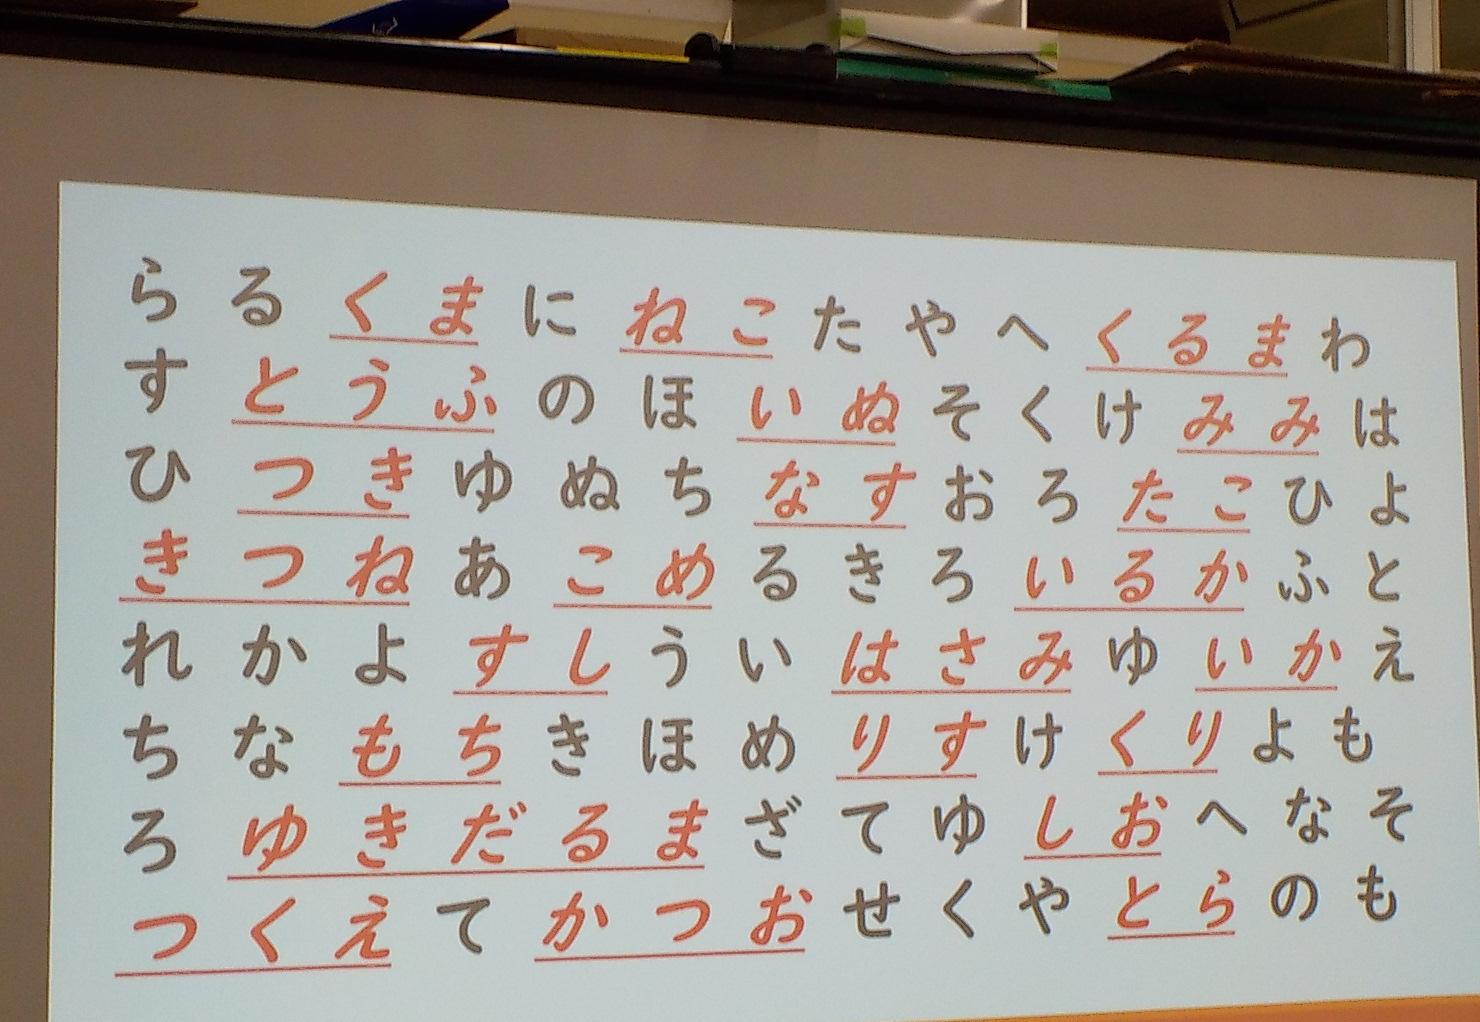 らるくまにねこたやへくるまわ
すとうふのほいぬそくけみみは
ひつきゆぬちなすおろたこひよ
きつねあこめるきろいるかふと
れかよすしういはさみゆいかえ
ちなもちきほめりすけくりよも
ろゆきだるまざてゆしおへなそ
つくえてかつおせくやとらのも